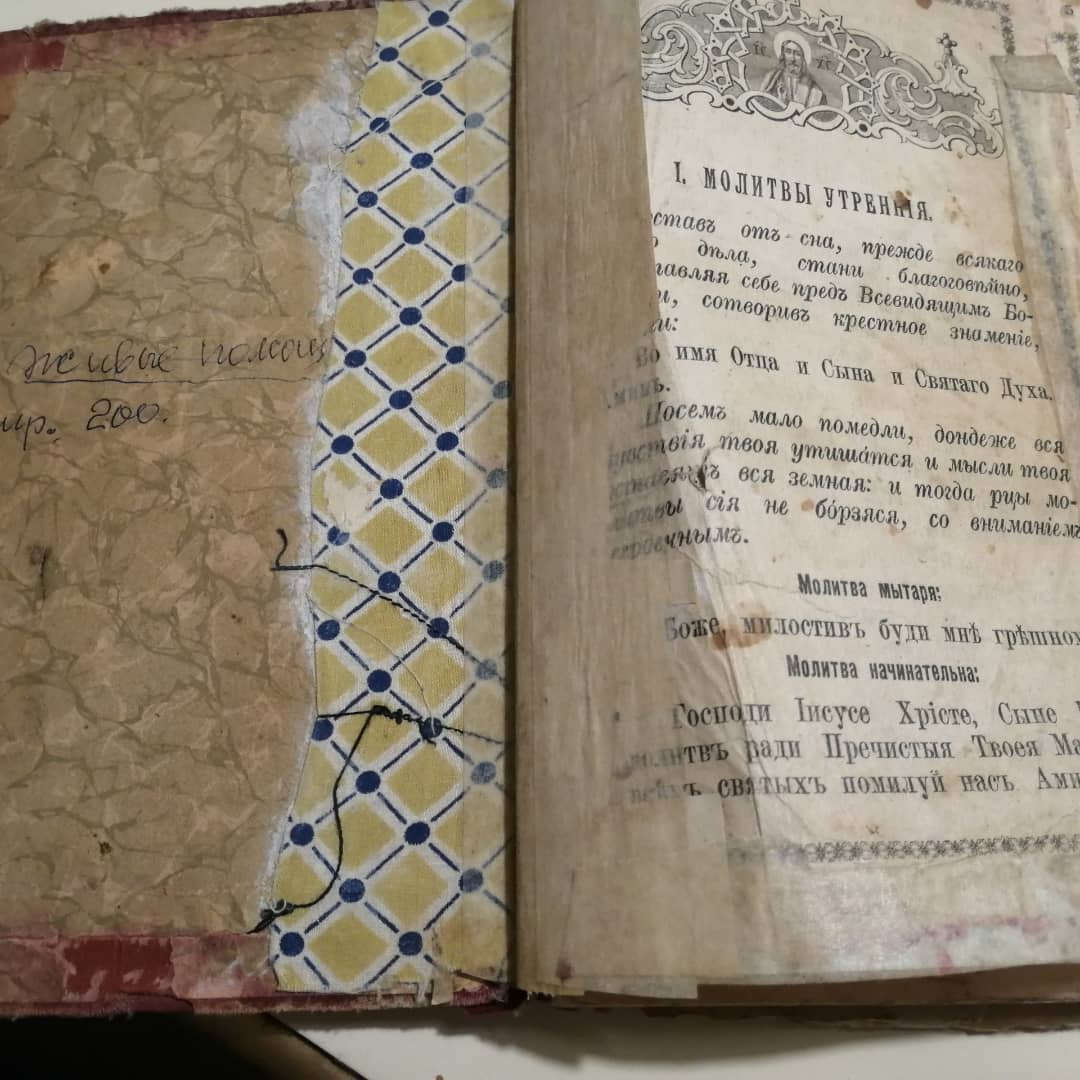 живые помощ
стр. 200.
ІС ХЗ
I. МОЛИТВЫ УТРЕННІЯ.
ставъ отъ сна, прежде всякаго
дѣла, стани благоговѣйно,
тавляя себе предъ Всевидящимъ Бо-
и, сотворивъ крестное знаменіе,
ли:
Во имя Отца и Сына и Святаго Духа.
Аминь.
Посемъ мало помедли, дондеже вся
чувствія твоя утиша́тся и мысли твоя
вся земная: и тогда рцы мо-
литвы сія не бо́рзяся, со вниманіемъ
сердечнымъ.
Молитва мытаря:
Боже, милостивъ буди мнѣ грѣшном
Молитва начинательна:
Господи Іисусе Хрісте, Сыне
молитвъ ради Пречистыя Твоея Ма
всѣхъ святыхъ помилуй насъ Ами